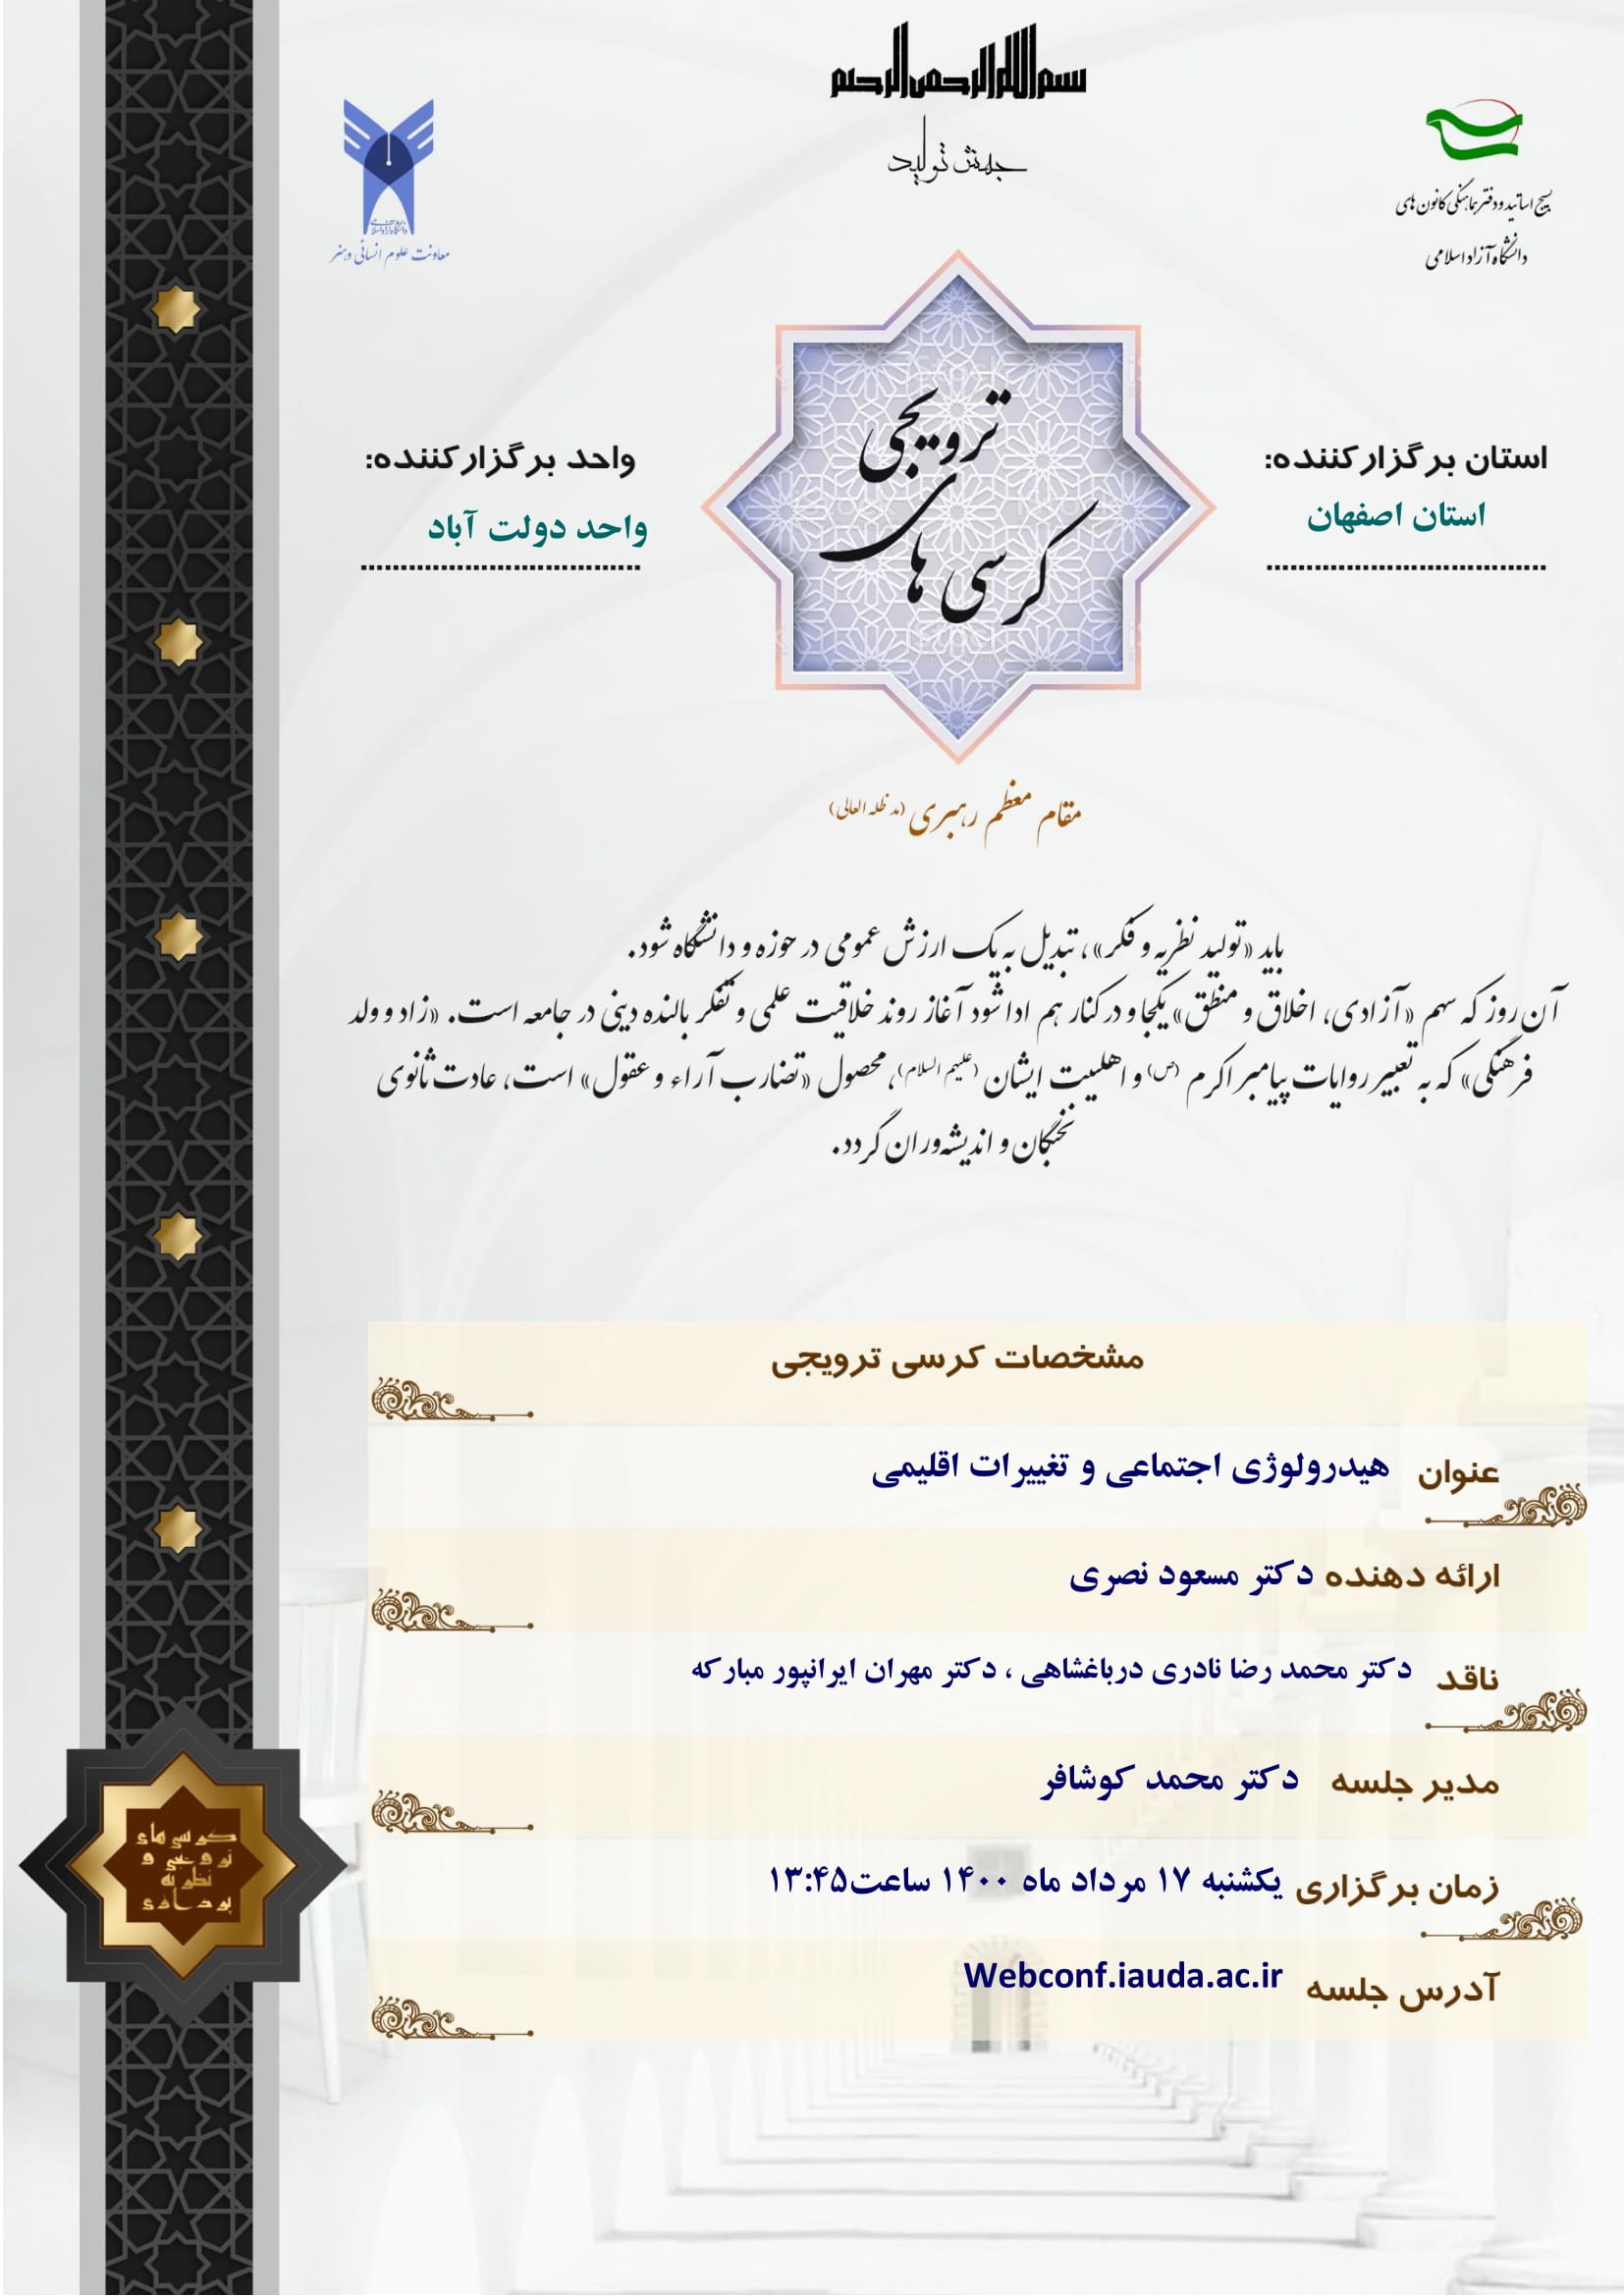 بسم الله الرحمن الرحیم
جهش تولید
بسیج اساتید و دفتر هماهنگی کانون های
دانشگاه آزاد اسلامی
دانشگاه آزاد اسلامی
معاونت علوم انسانی و هنر
کرسی های ترویجی
استان برگزارکننده:
استان اصفهان
واحد برگزارکننده:
واحد دولت آباد
مقام معظم رهبری (مد ظله العالی)
باید «تولید نظریه و فکر»، تبدیل به یک ارزش عمومی در حوزه و دانشگاه شود.
آن روز که سهم «آزادی، اخلاق و منطق» یکجا و در کنار هم ادا شود آغاز روند خلاقیت علمی و تفکر بالنده دینی در جامعه است. «زاد و ولد
فرهنگی» که به تعبیر روایات پیامبر اکرم (ص) و اهلبیت ایشان (علیهم السلام)، محصول «تضارب آراء و عقول» است، عادت ثانوی
نخبگان و اندیشه‌وران گردد.
مشخصات کرسی ترویجی
عنوان هیدرولوژی اجتماعی و تغییرات اقلیمی
ارائه دهنده دکتر مسعود نصری
ناقد دکتر محمد رضا نادری درباغشاهی ، دکتر مهران ایرانپور مبارکه
مدیر جلسه دکتر محمد کوشافر
زمان برگزاری یکشنبه ۱۷ مرداد ماه ۱۴۰۰ ساعت۱۳:۴۵
آدرس جلسه Webconf.iauda.ac.ir
کرسی های
ترویجی و
نظریه
پردازی